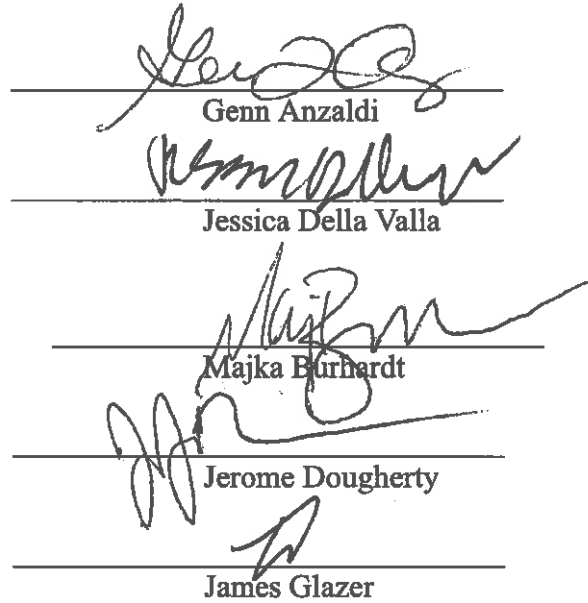 Genn Anzaldi
Jessica Della Valla
Majka Burhardt
Jerome Dougherty
James Glazer